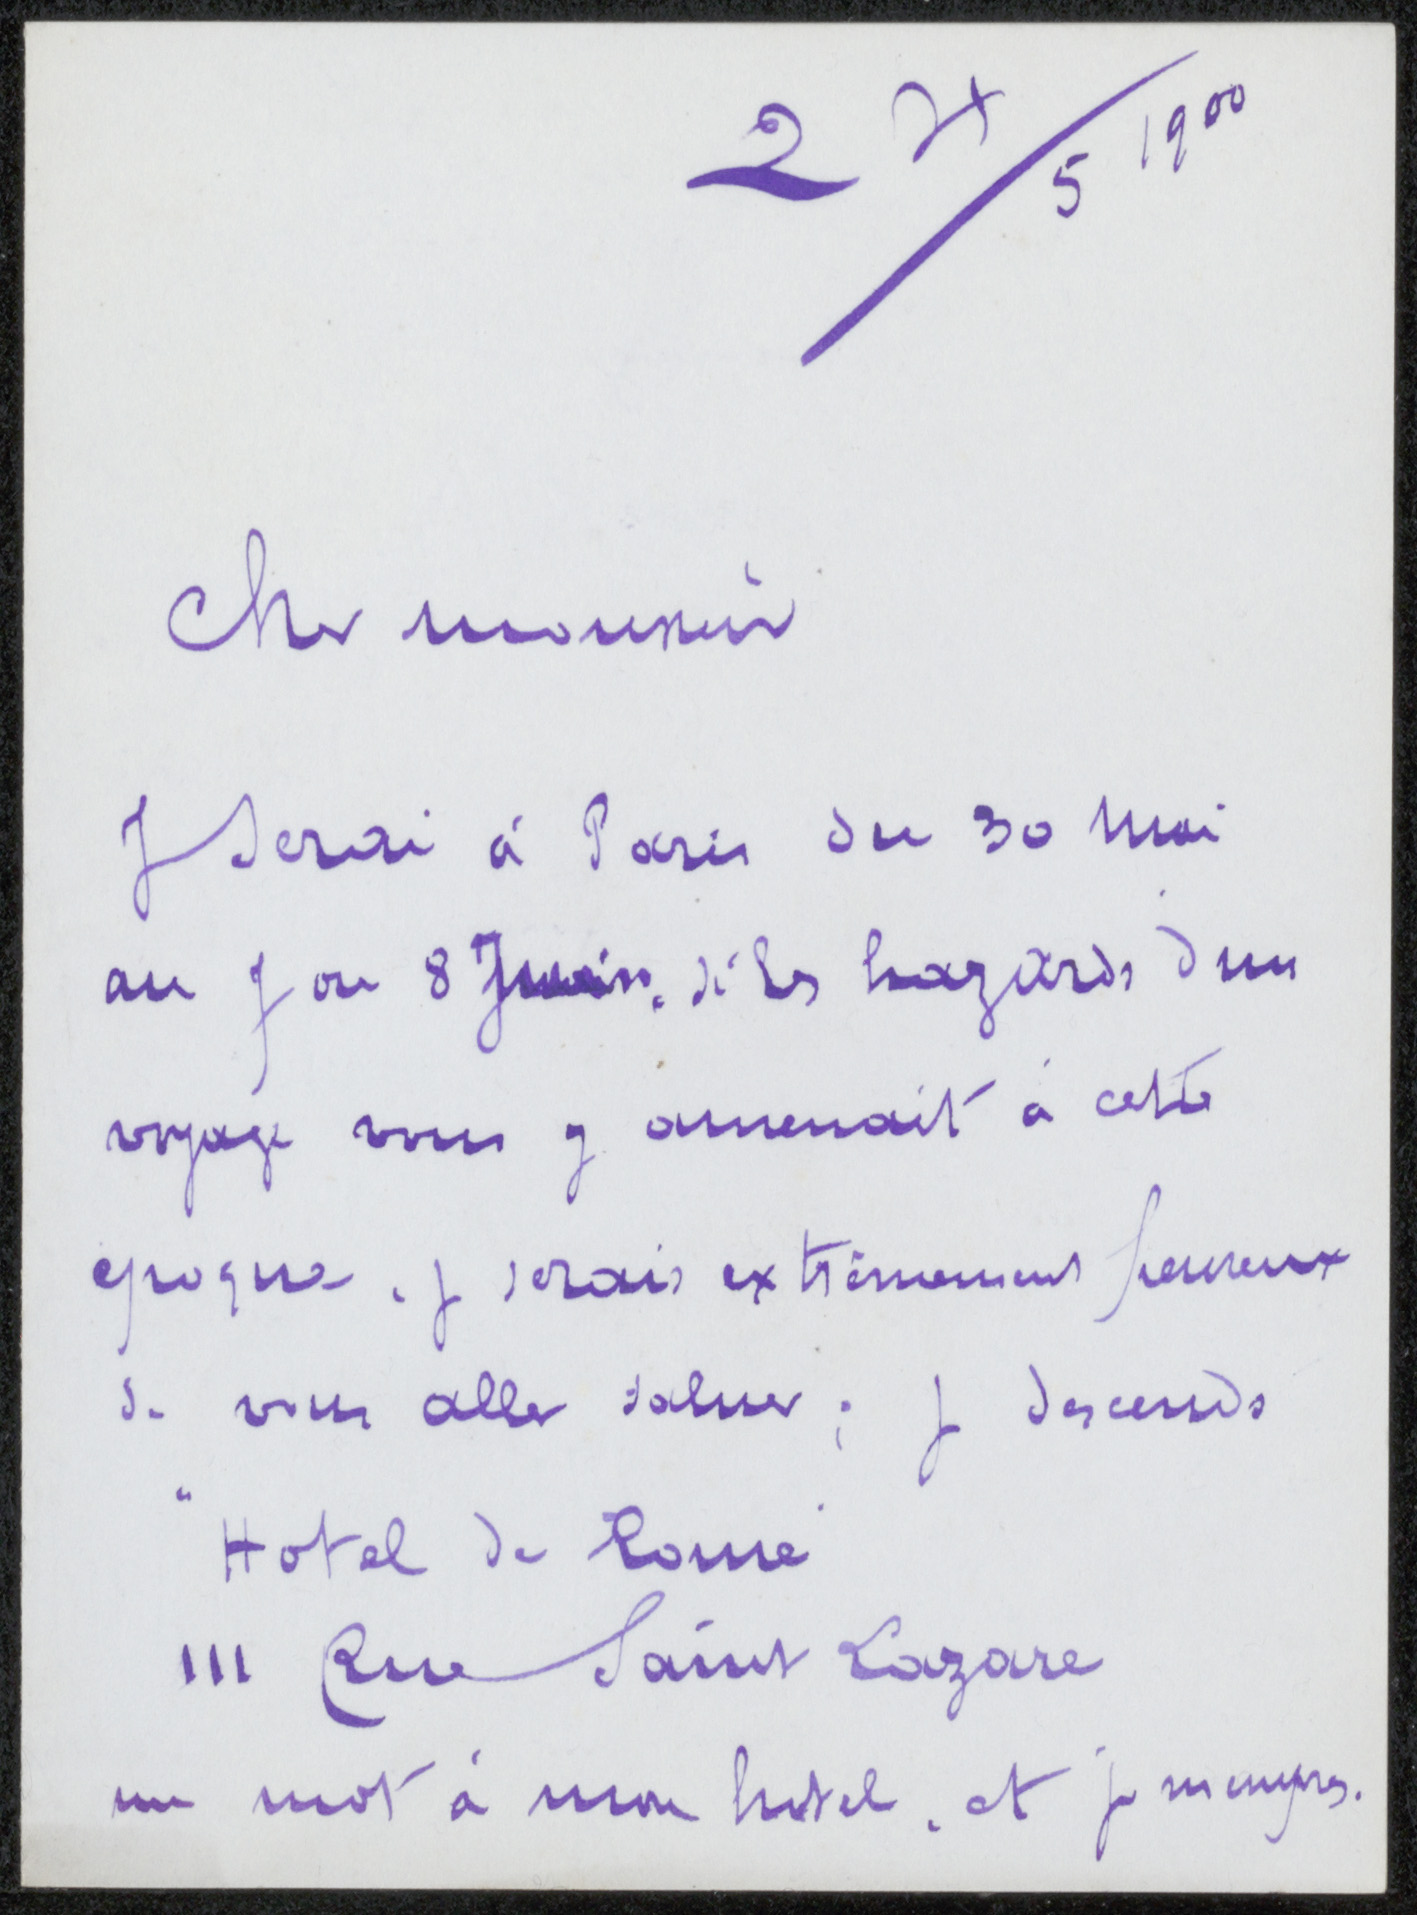 5 1900
Cher monsieur
J serai à Paris du 30 Mai
au 7 ou 8 Juin. si les hazards d'un
voyage vous y amenait à cette
epoque, j serais extrêmement heureux
de vous aller saluer; j descends
"Hotel de Rome"
111 Rue Saint Lazare
un mot à mon hotel, et je